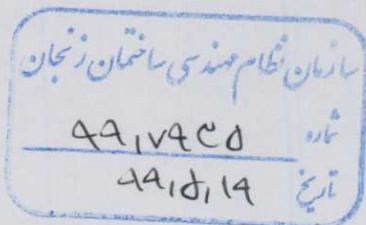 سازمان نظام مهندسی ساختمان زنجان
شماره ۹۹/۷۹۳۵
تاریخ ۹۹/۵/۱۹